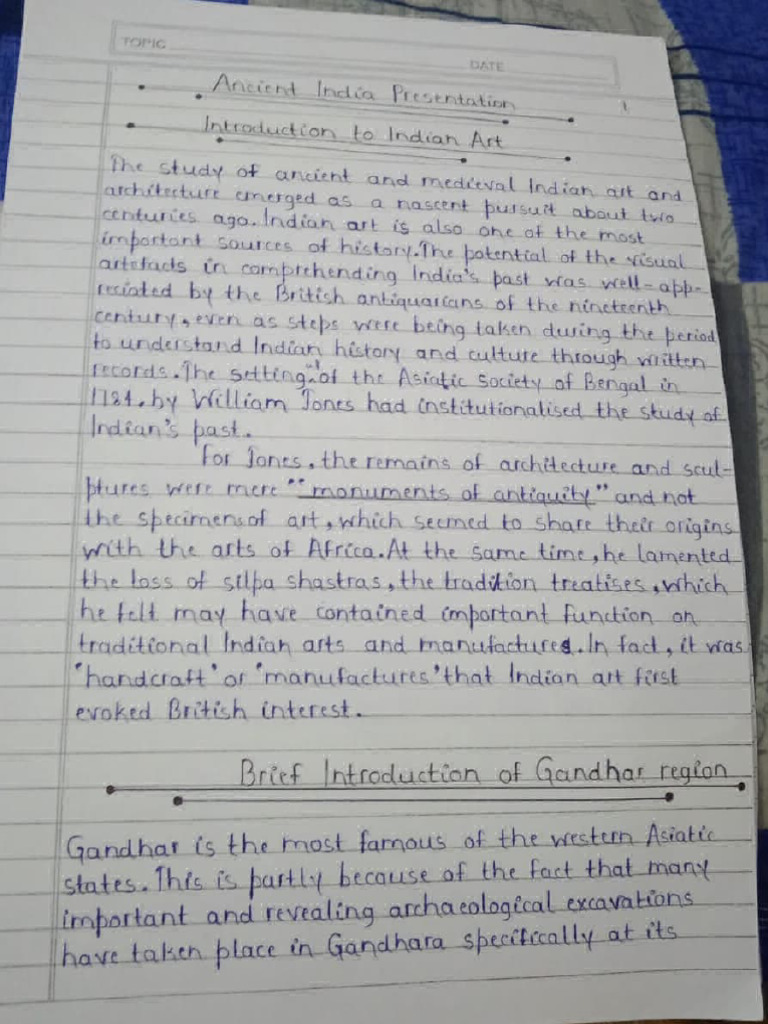 TOPIC
DATE
1
Ancient India Presentation
Introduction to Indian Art
The study of ancient and medieval Indian art and
architecture emerged as a nascent pursuit about two
centuries ago. Indian art is also one of the most
important sources of history. The potential of the visual
artefacts in comprehending India's past was well-app-
reciated by the British antiquarians of the nineteenth
century, even as steps were being taken during the period
to understand Indian history and culture through written
records. The setting of the Asiatic society of Bengal in
1784, by William Jones had institutionalised the study of
Indian's past.
For Jones, the remains of architecture and scul-
ptures were mere "monuments of antiquity" and not
the specimens of art, which seemed to share their origins
with the arts of Africa. At the same time, he lamented
the loss of silpa shastras, the tradition treatises, which
he felt may have contained important function on
traditional Indian arts and manufactures. In fact, it was
'handcraft' or 'manufactures' that Indian art first
evoked British interest.
Brief Introduction of Gandhar region
Gandhar is the most famous of the western Asiatic
states. This is partly because of the fact that many
important and revealing archaeological excavations
have taken place in Gandhara specifically at its